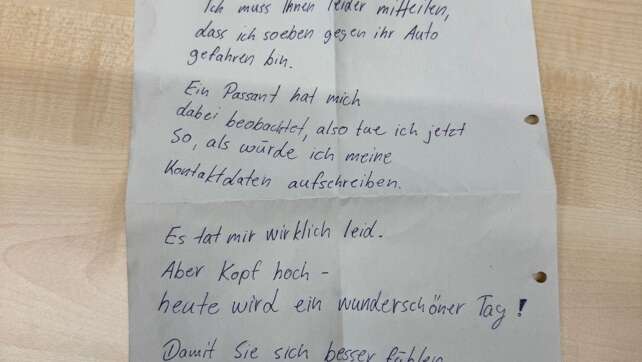 Ich muss Ihnen leider mitteilen,
dass ich soeben gegen ihr Auto
gefahren bin.
Ein Passant hat mich
dabei beobachtet, also tue ich jetzt
so, als würde ich meine
Kontaktdaten aufschreiben.
Es tat mir wirklich leid.
Aber Kopf hoch –
heute wird ein wunderschöner Tag!
Damit Sie sich besser fühlen